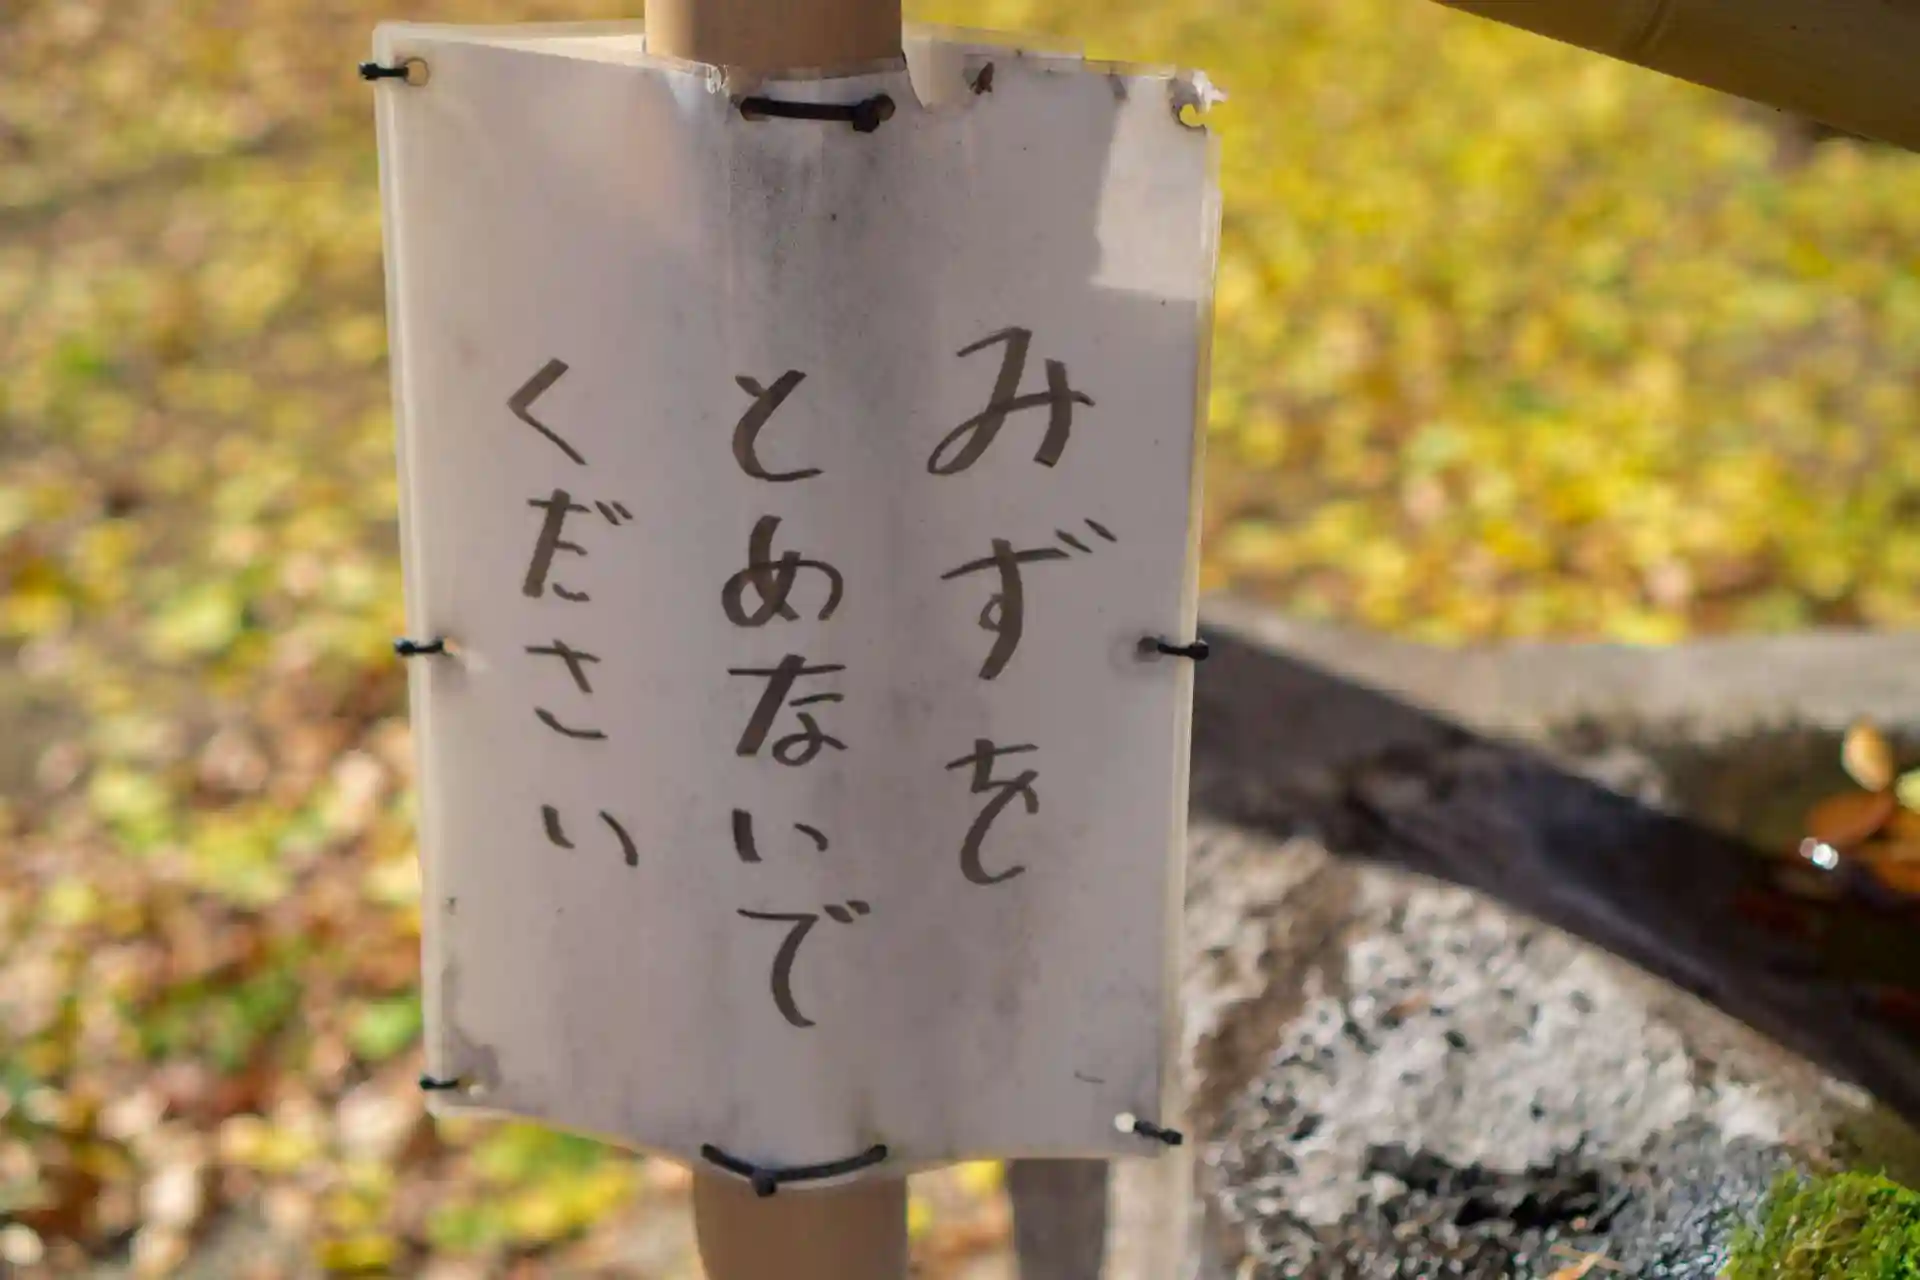 みずを
とめないで
ください